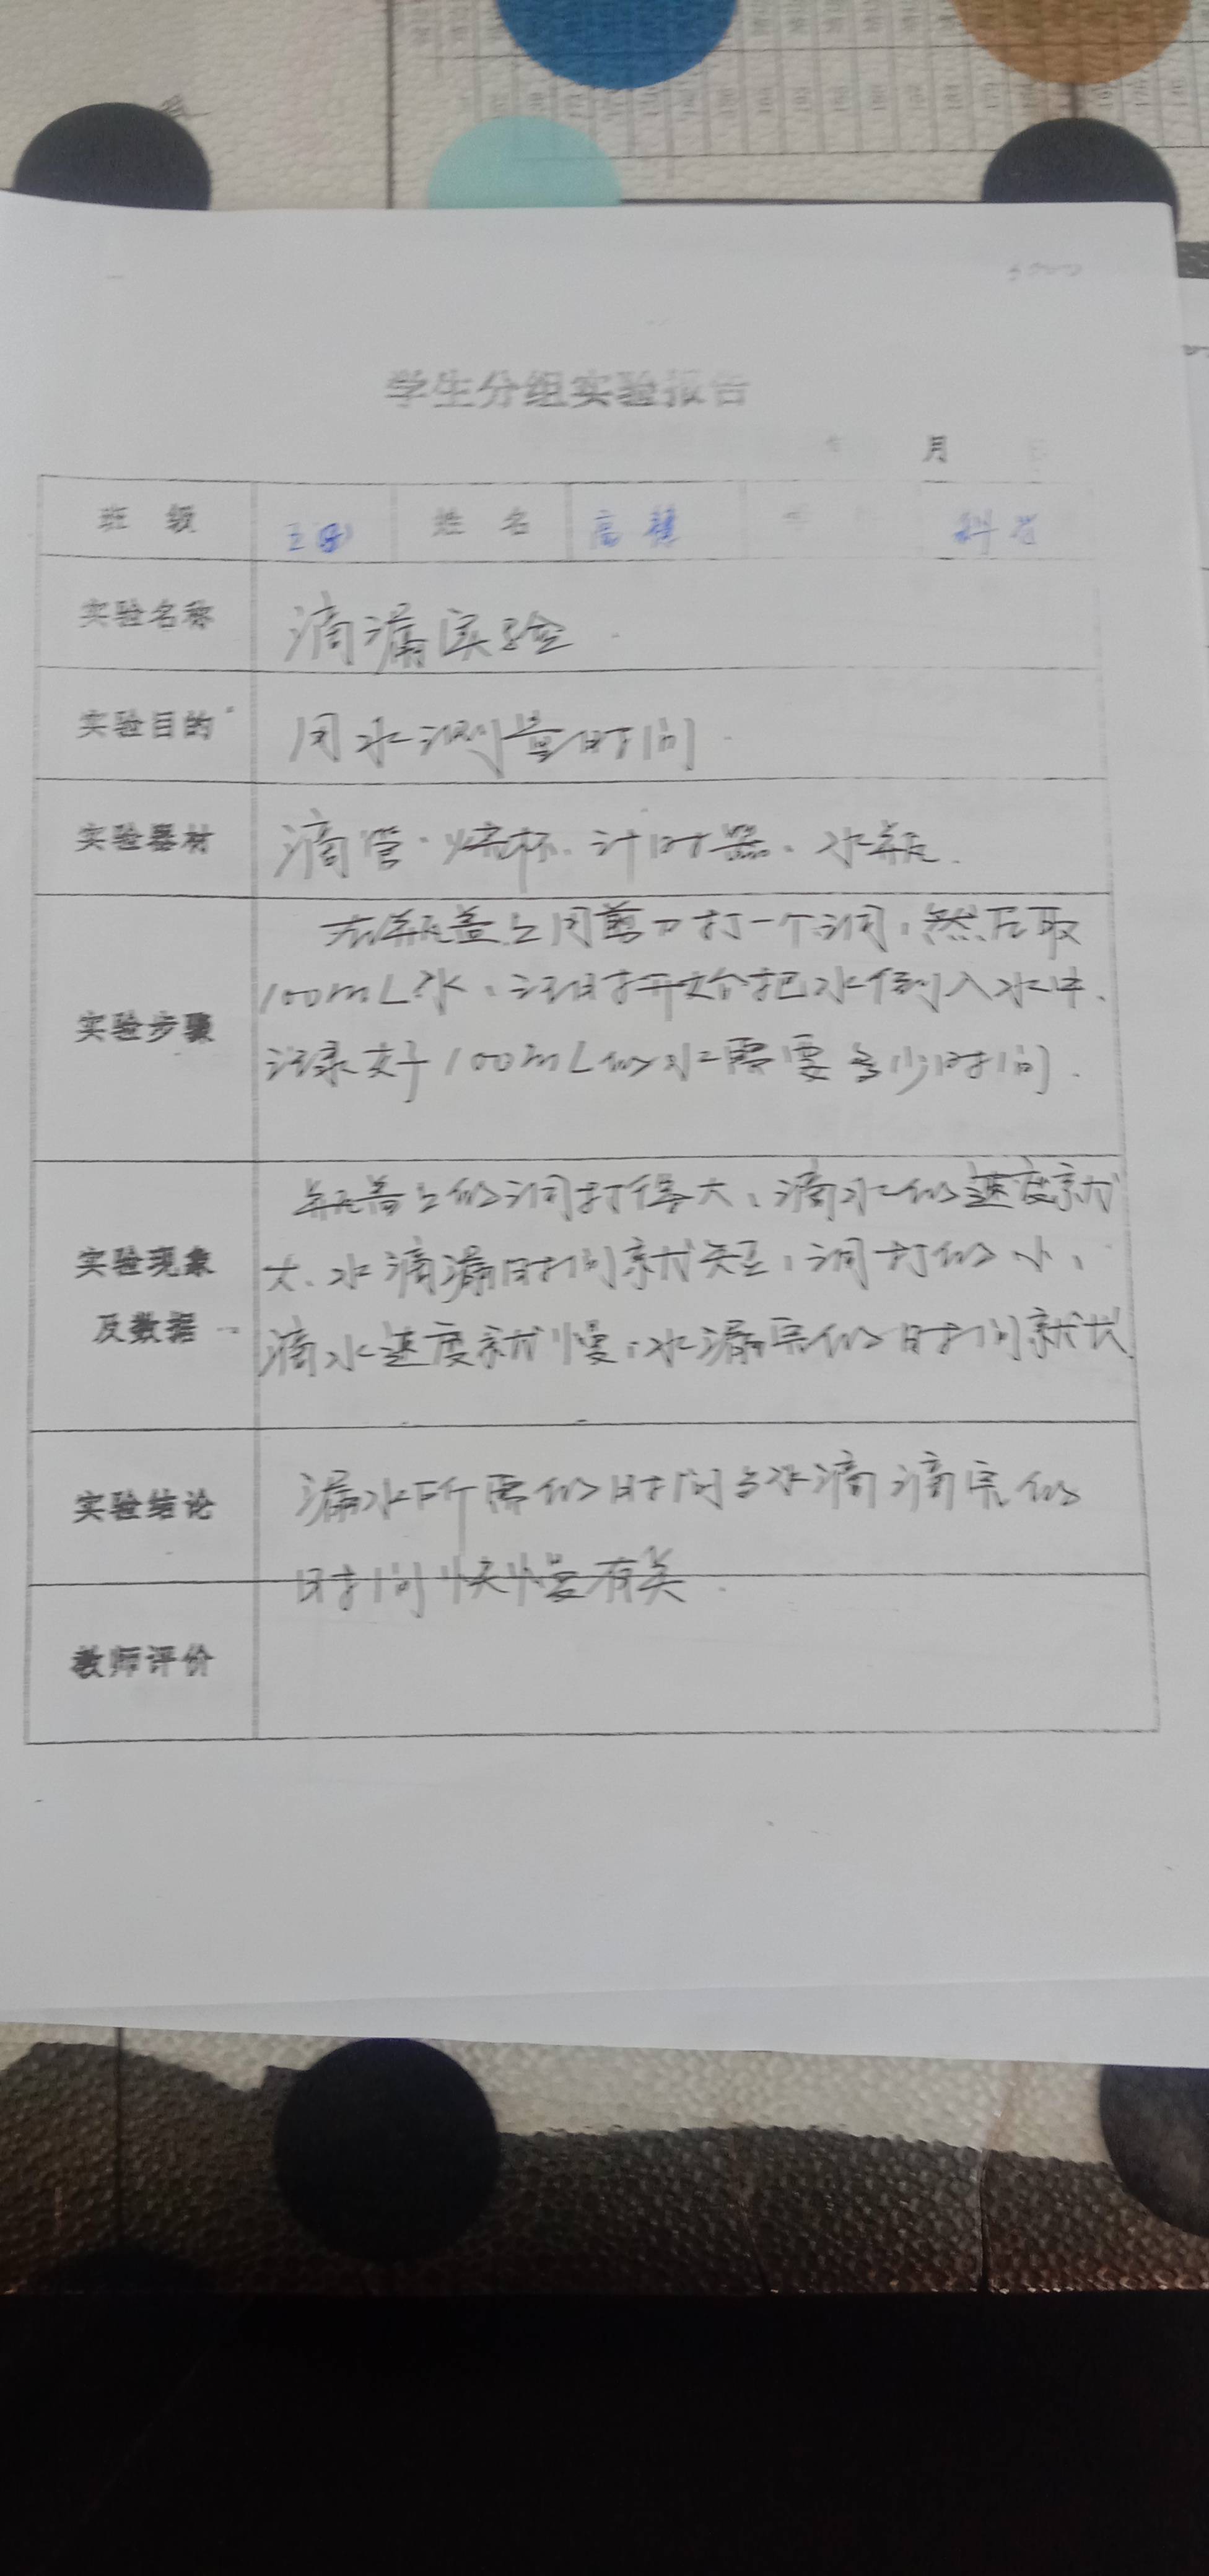 学生分组实验报告
月
班 级 姓 名 高 科学
实验名称 滴漏实验
实验目的 用水测量时间
实验器材 滴管、烧杯、计时器、水瓶.
实验步骤
在瓶盖上用剪刀打一个洞,然后取
100mL水、计时开始把水倒入水中、
记录好100mL的水需要多少时间.
实验现象
及数据
瓶盖上的洞打得大、滴水的速度就
大、水滴漏时间就短,洞打的小,
滴水速度就慢,水漏完的时间就长
实验结论
漏水所需的时间与水滴滴完的
时间快慢有关.
教师评价